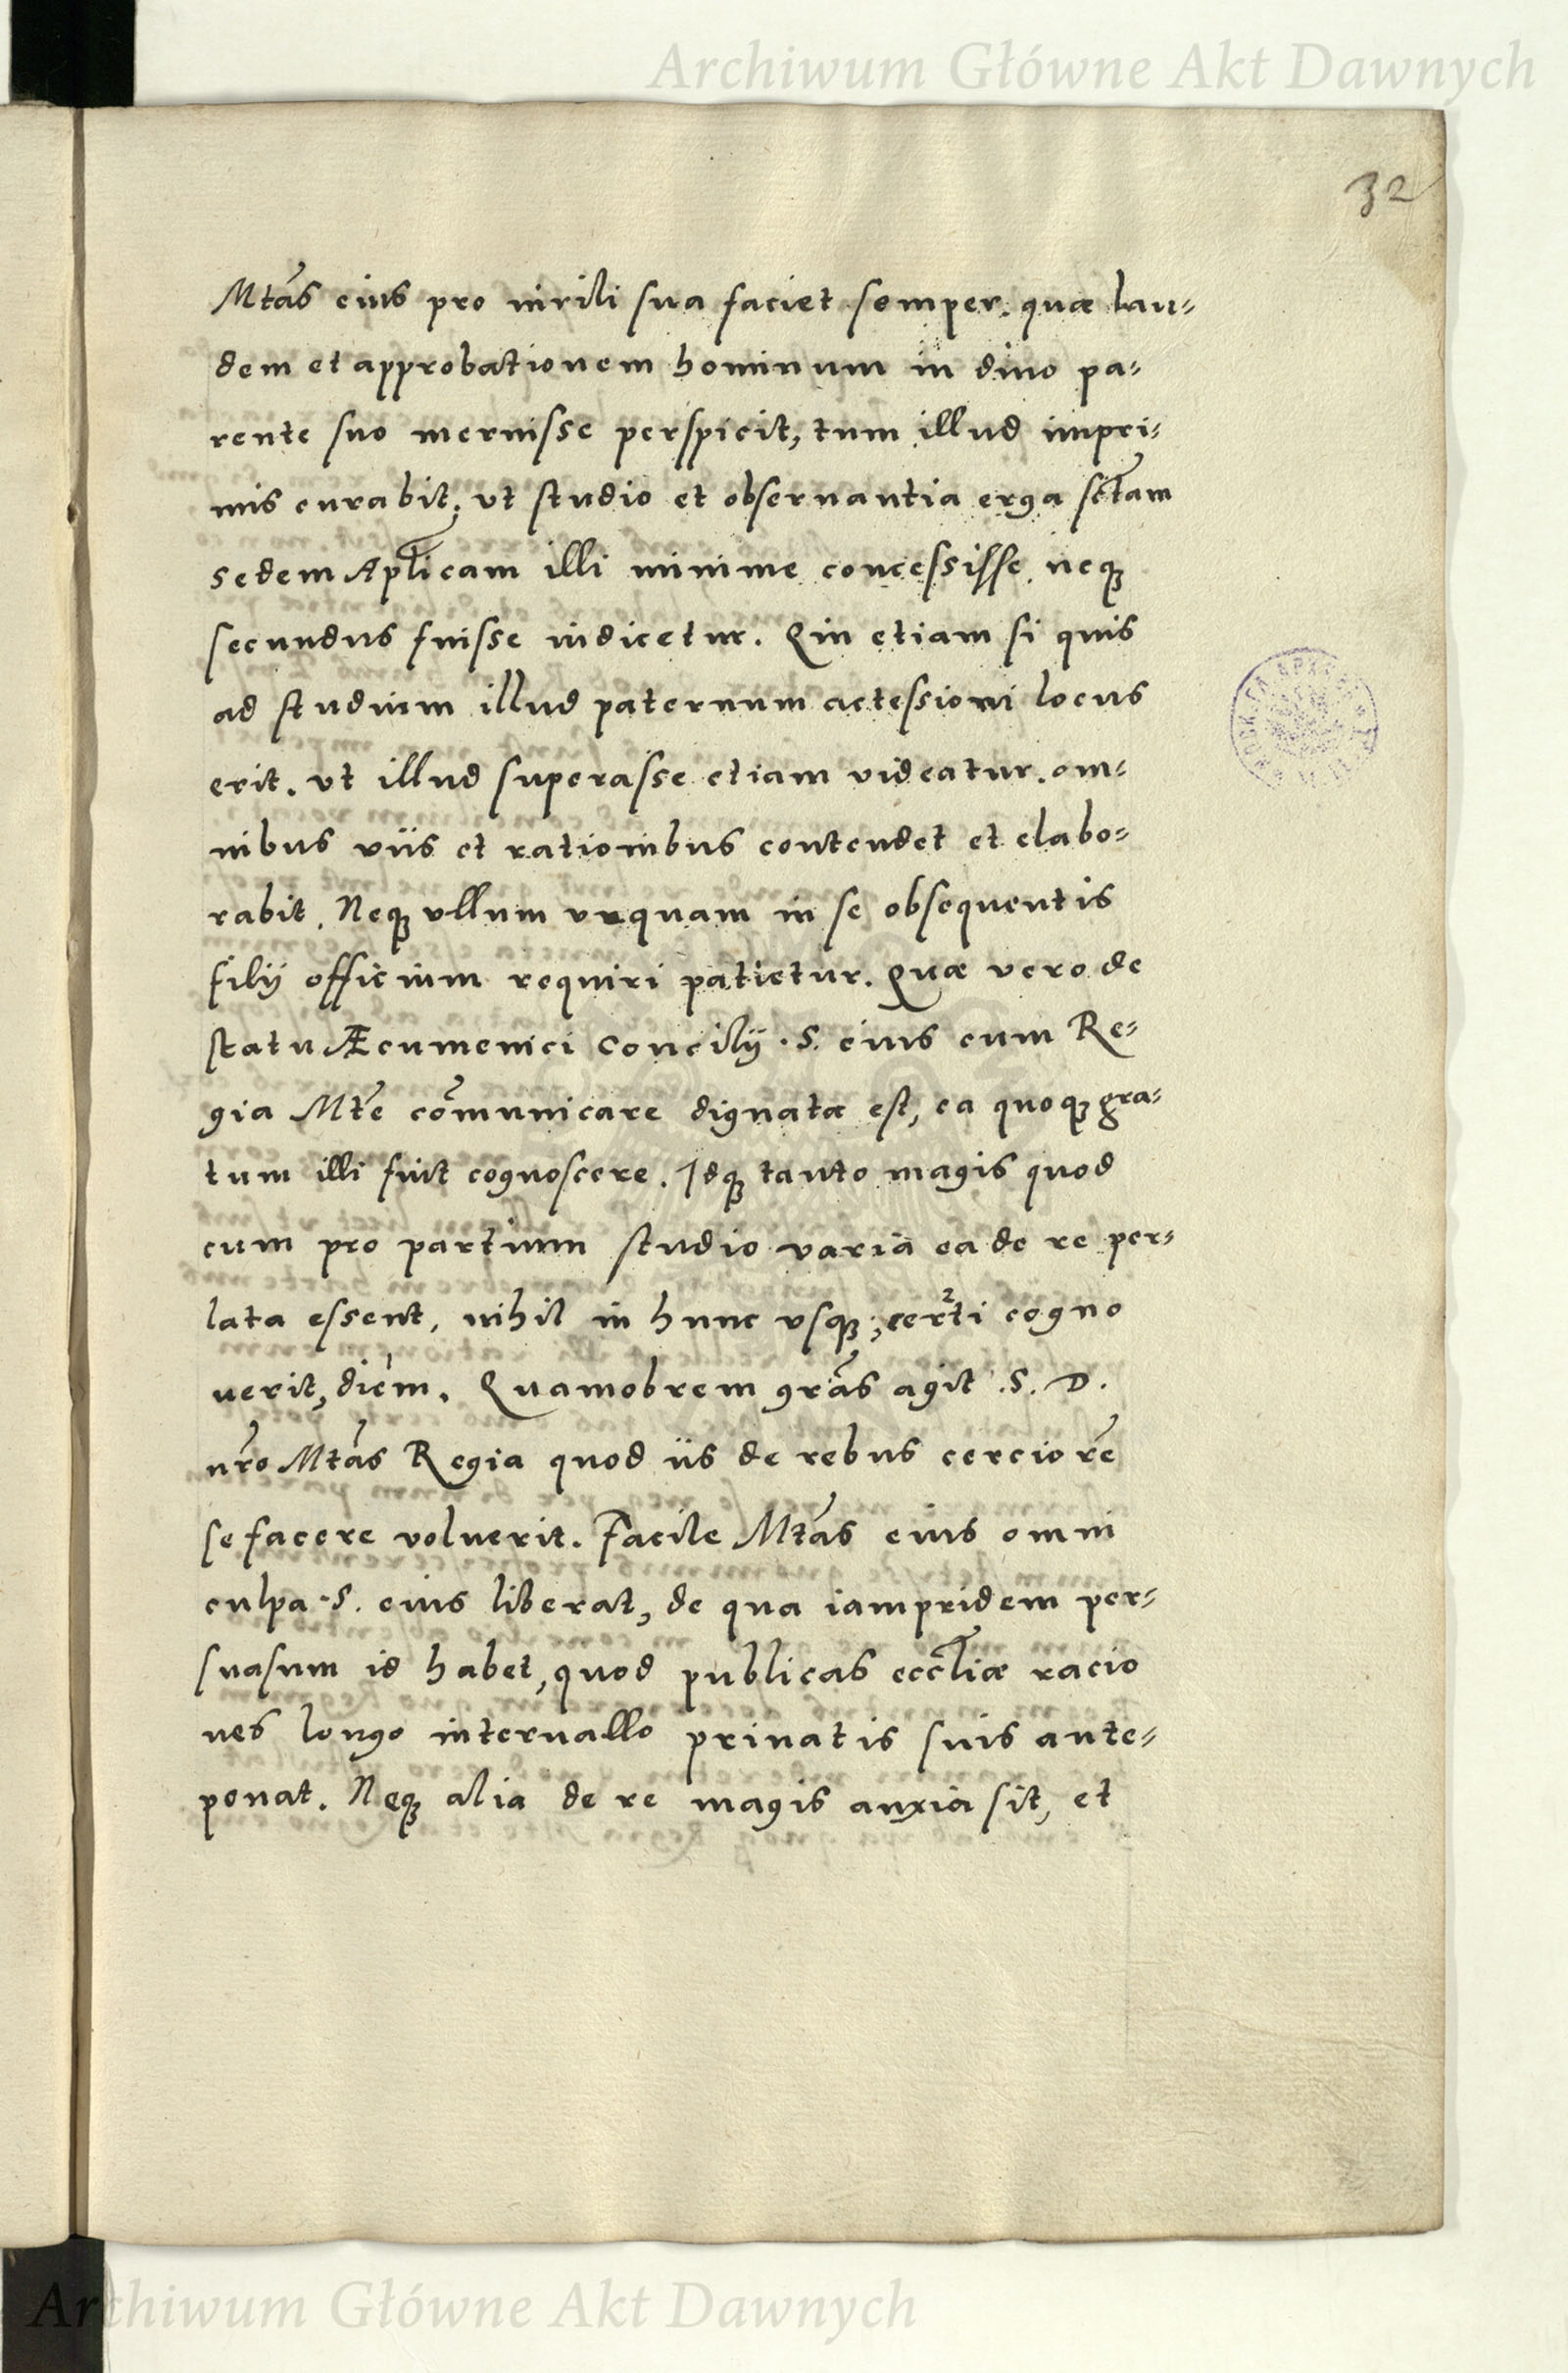 Archiwum Główne Akt Dawnych
32
Mtãs eius pro uirili sua faciet semper. quæ lau=
dem et approbationem hominum in diuo pa=
rente suo meruisse perspicit, tum illud impri=
mis curabit, vt studio et obseruantia erga sctãm
sedem Aplicam illi minime concessisse, neqꝫ
secundus fuisse iudicetur. Qin etiam si quis
ad studium illud paternum accessioni locus
erit. vt illud superasse etiam videatur. om=
nibus viis et rationibus contendet et elabo=
rabit. Neqꝫ vllum vnquam in se obsequentis
filij officium requiri patietur. Quæ vero de
statu Æcumenici Concilij .S. eius cum Re=
gia Mtẽ cõmunicare dignata est, ea quoqꝫ gra=
tum illi fuit cognoscere. Idqꝫ tanto magis quod
cum pro partium studio varia ea de re per=
lata essent, nihil in hunc vsqꝫ certi cogno
uerit, diem. Quamobrem grãs agit .S. D.
nr̃o Mtãs Regia quod iis de rebus cerciorẽ
se facere voluerit. Facile Mtãs eius omni
culpa .S. eius liberat, de qua iampridem per=
suasum id habet, quod publicas eccl̃iæ racio
nes longo interuallo priuatis suis ante=
ponat. Neqꝫ alia de re magis anxia sit, et
Archiwum Główne Akt Dawnych